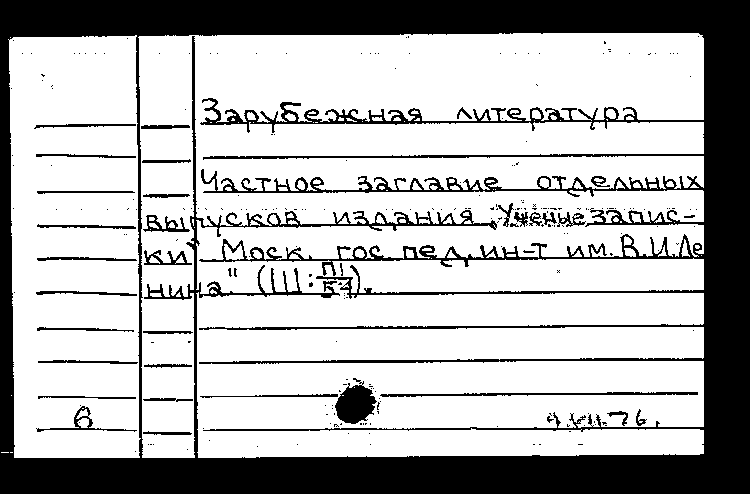 Зарубежная литература
Частное заглавие отдельных
выпусков издания „Ученые запис-
ки" Моск. гос. пед. ин-т им. В.И.Ле
нина" (III:
в